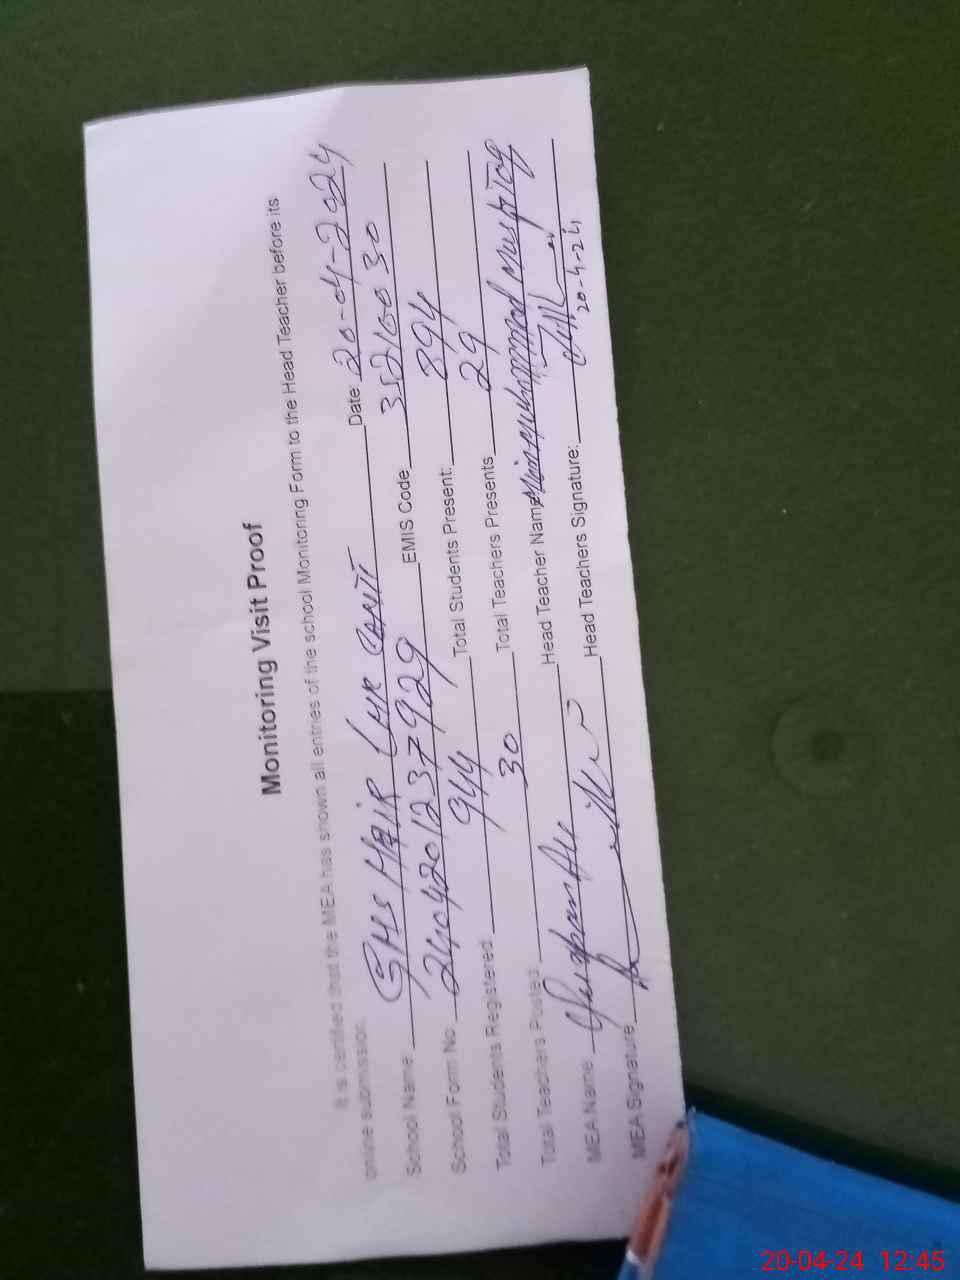 Monitoring Visit Proof
It is certified that the MEA has shown all entries of the school Monitoring Form to the Head Teacher before its
online submission.
School Name GHS MAIR LHR CANTT Date: 20-04-2024
School Form No 2404201237929 EMIS Code 35210030
Total Students Registered: 944 Total Students Present: 894
Total Teachers Posted: 30 Total Teachers Presents 29
MEA Name Ali Head Teacher Name Mian Muhammad Mushtaq
MEA Signature Head Teachers Signature:
20-4-24
20-04-24 12:45